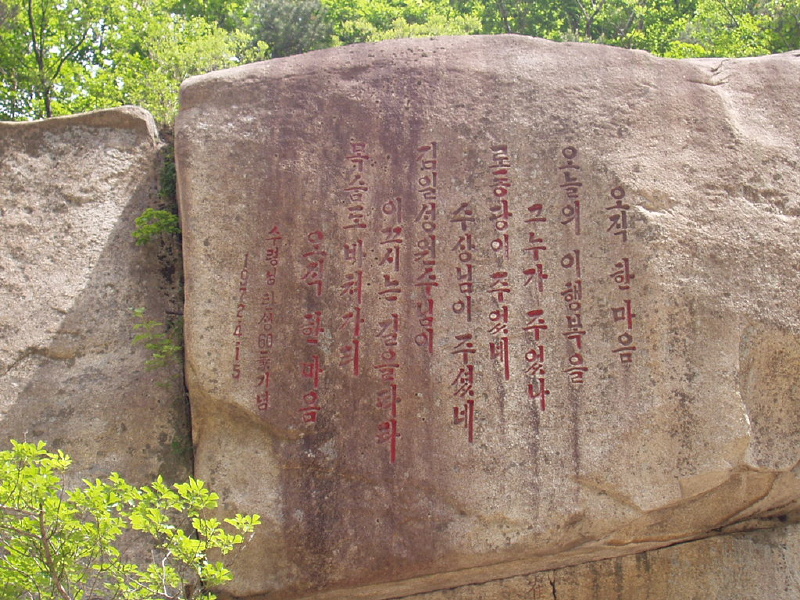 오직 한마음
오늘의 이행복을
그누가 주었나
로동당이 주었네
수상님이 주셨네
김일성원수님이
이끄시는 길을따라
목숨도바쳐가리
오직 한마음
수령님 탄생60돐기념
1972.4.15